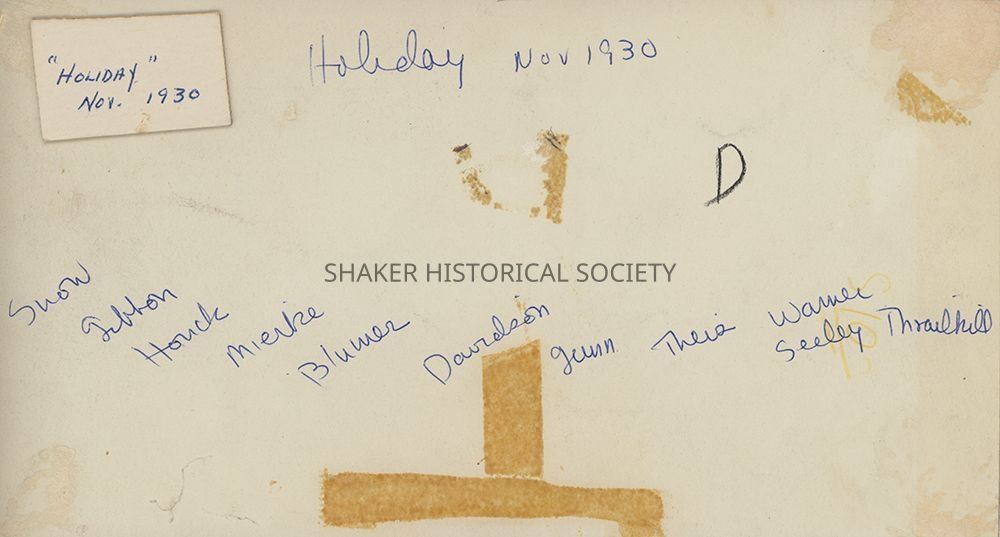 "HOLIDAY"
NOV. 1930
Holiday Nov 1930
D
SHAKER HISTORICAL SOCIETY
Snow
Houck
Mierke
Blumer
Davidson
Gunn
Theis
Warner
Seeley
Thrailkill